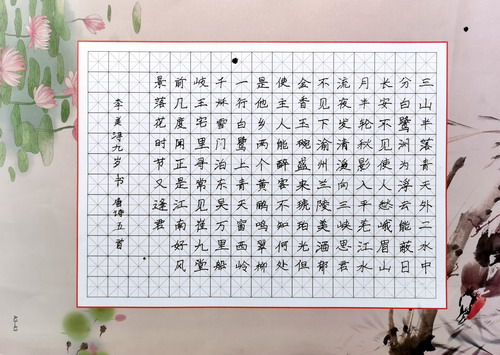 三山半落青天外二水中
分白鹭洲为浮云能蔽日
长安不见使人愁峨眉山
月半轮秋影入平羌江水
流夜发清溪向三峡思君
不见下渝州兰陵美酒郁
金香玉碗盛来琥珀光但
使主人能醉客不知何处
是他乡两个黄鹂鸣翠柳
一行白鹭上青天窗西岭
千秋雪门泊东吴万里船
岐王宅里寻常见崔九堂
前几度闻正是江南好风
景落花时节又逢君
李美 九岁书 唐诗五首